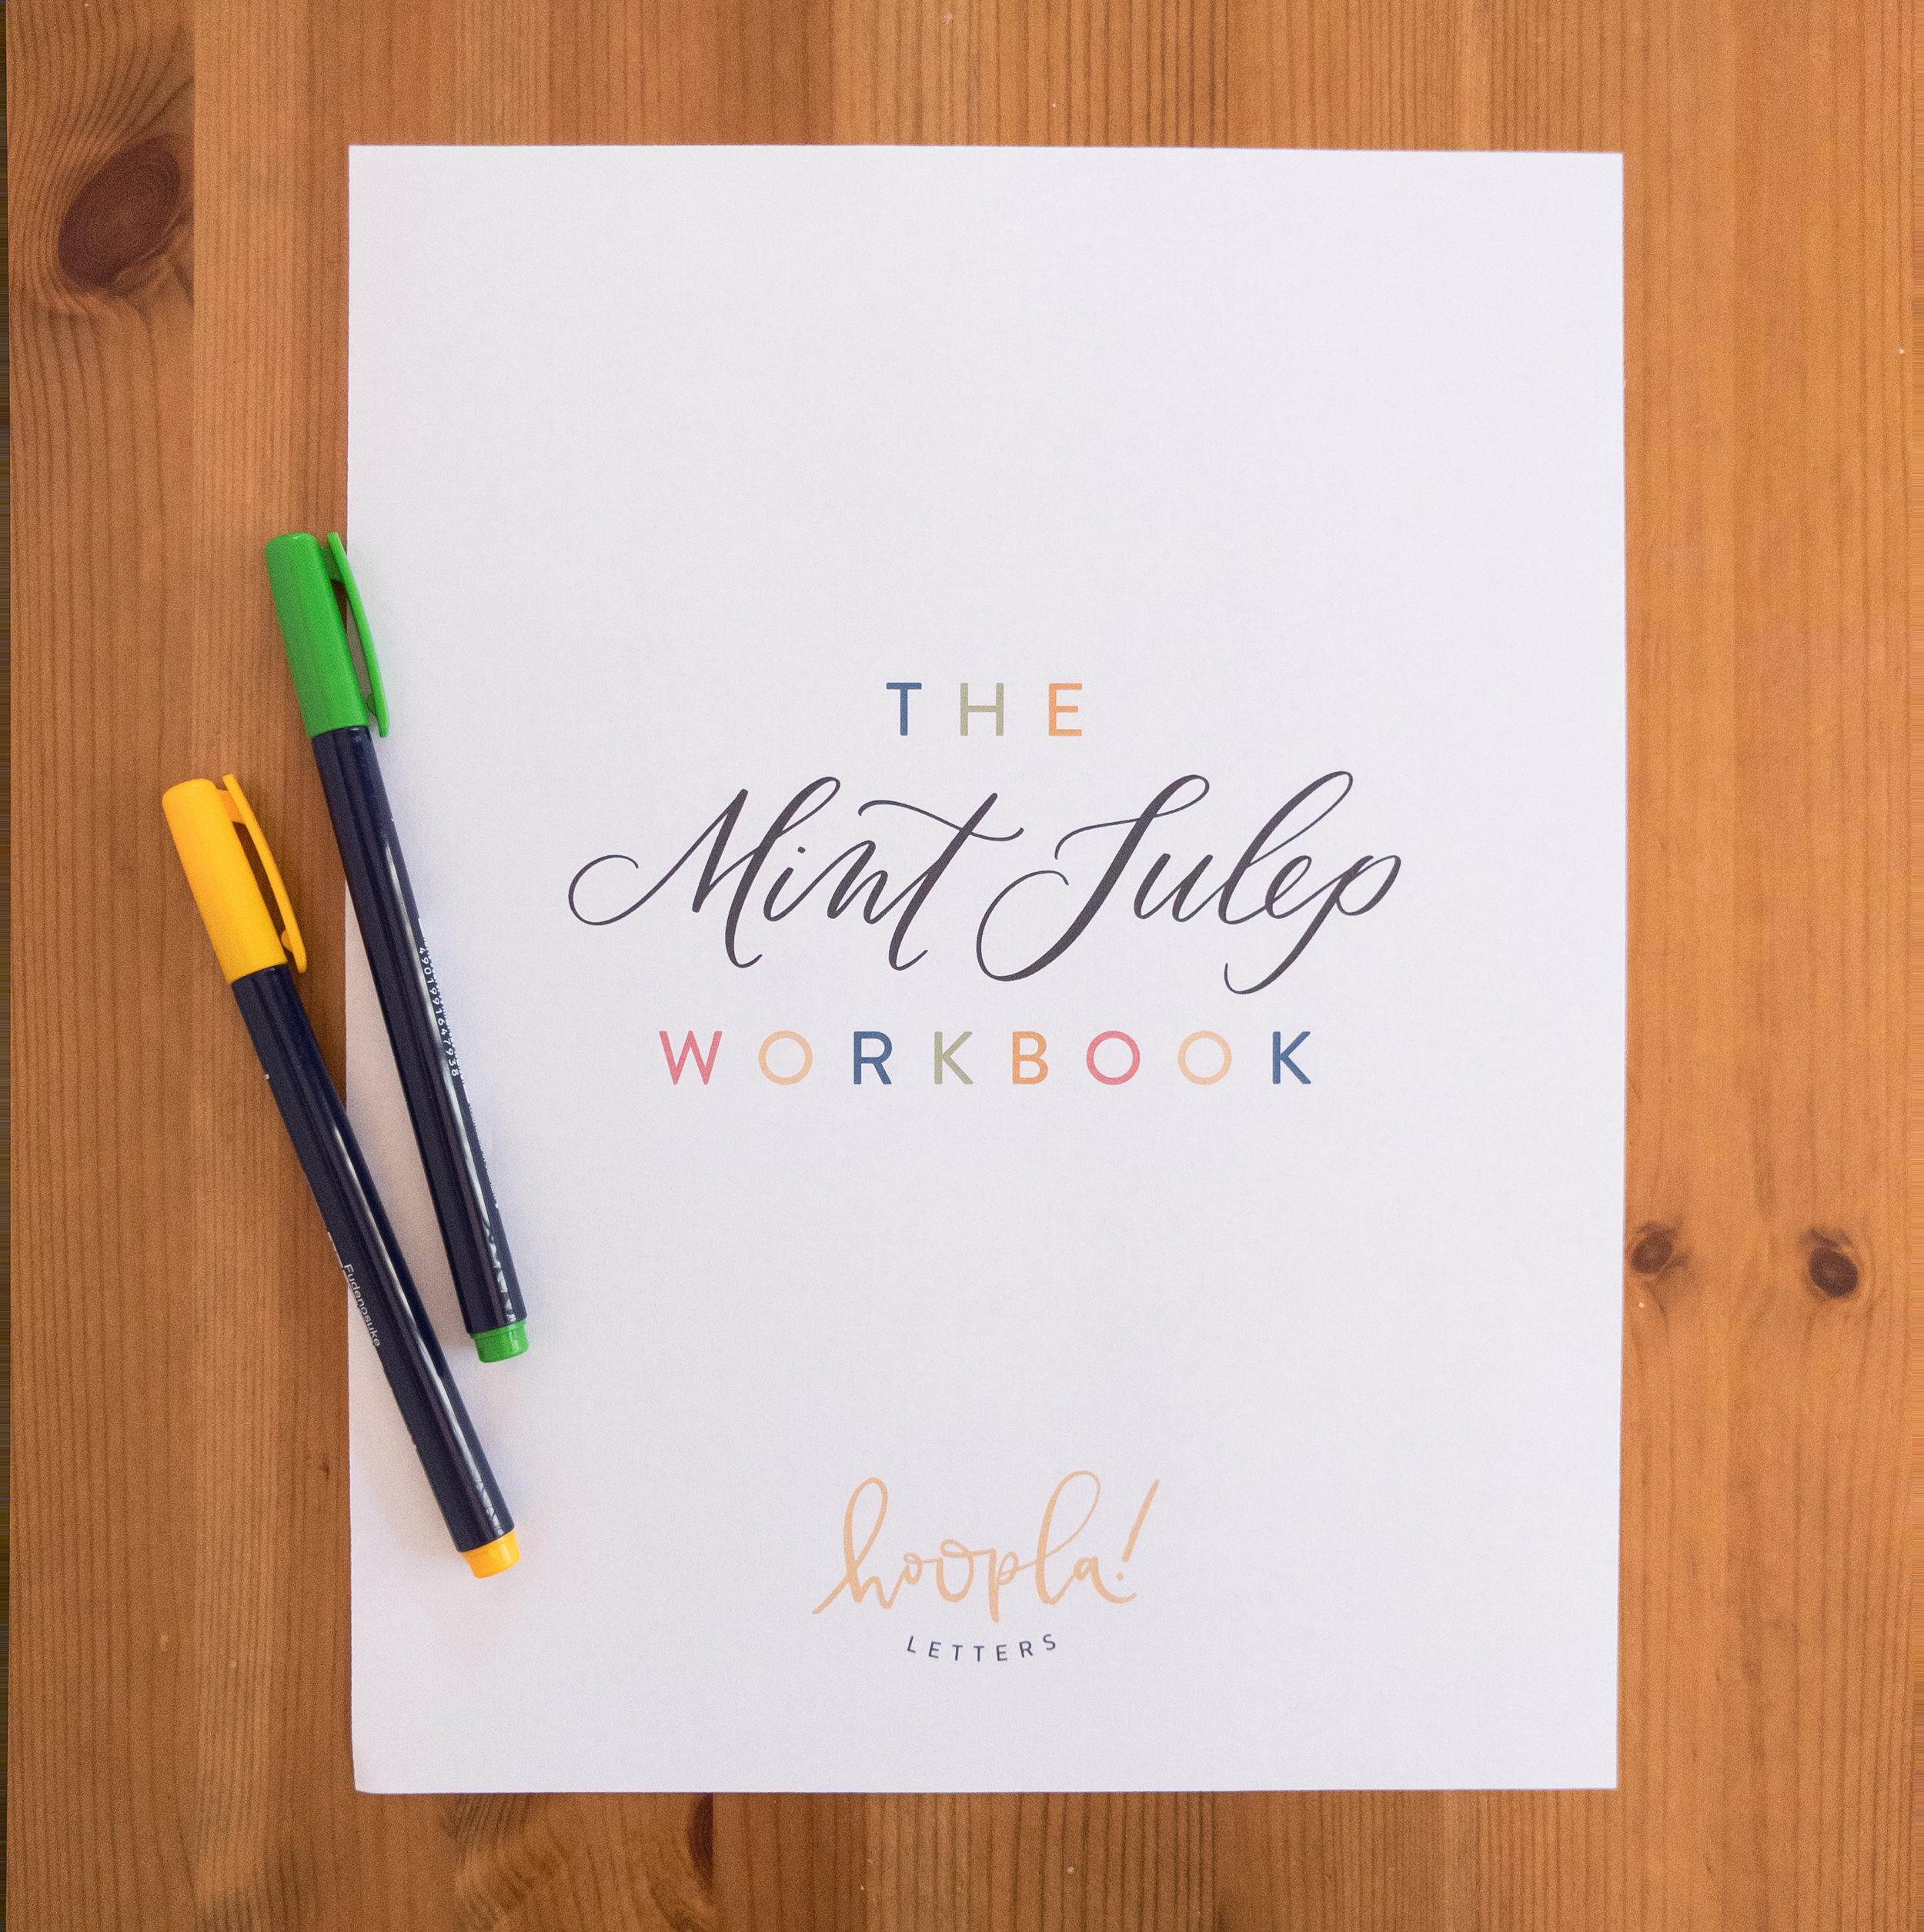 THE
Mint Julep
WORKBOOK
hoopla!
LETTERS
Fudenosuke